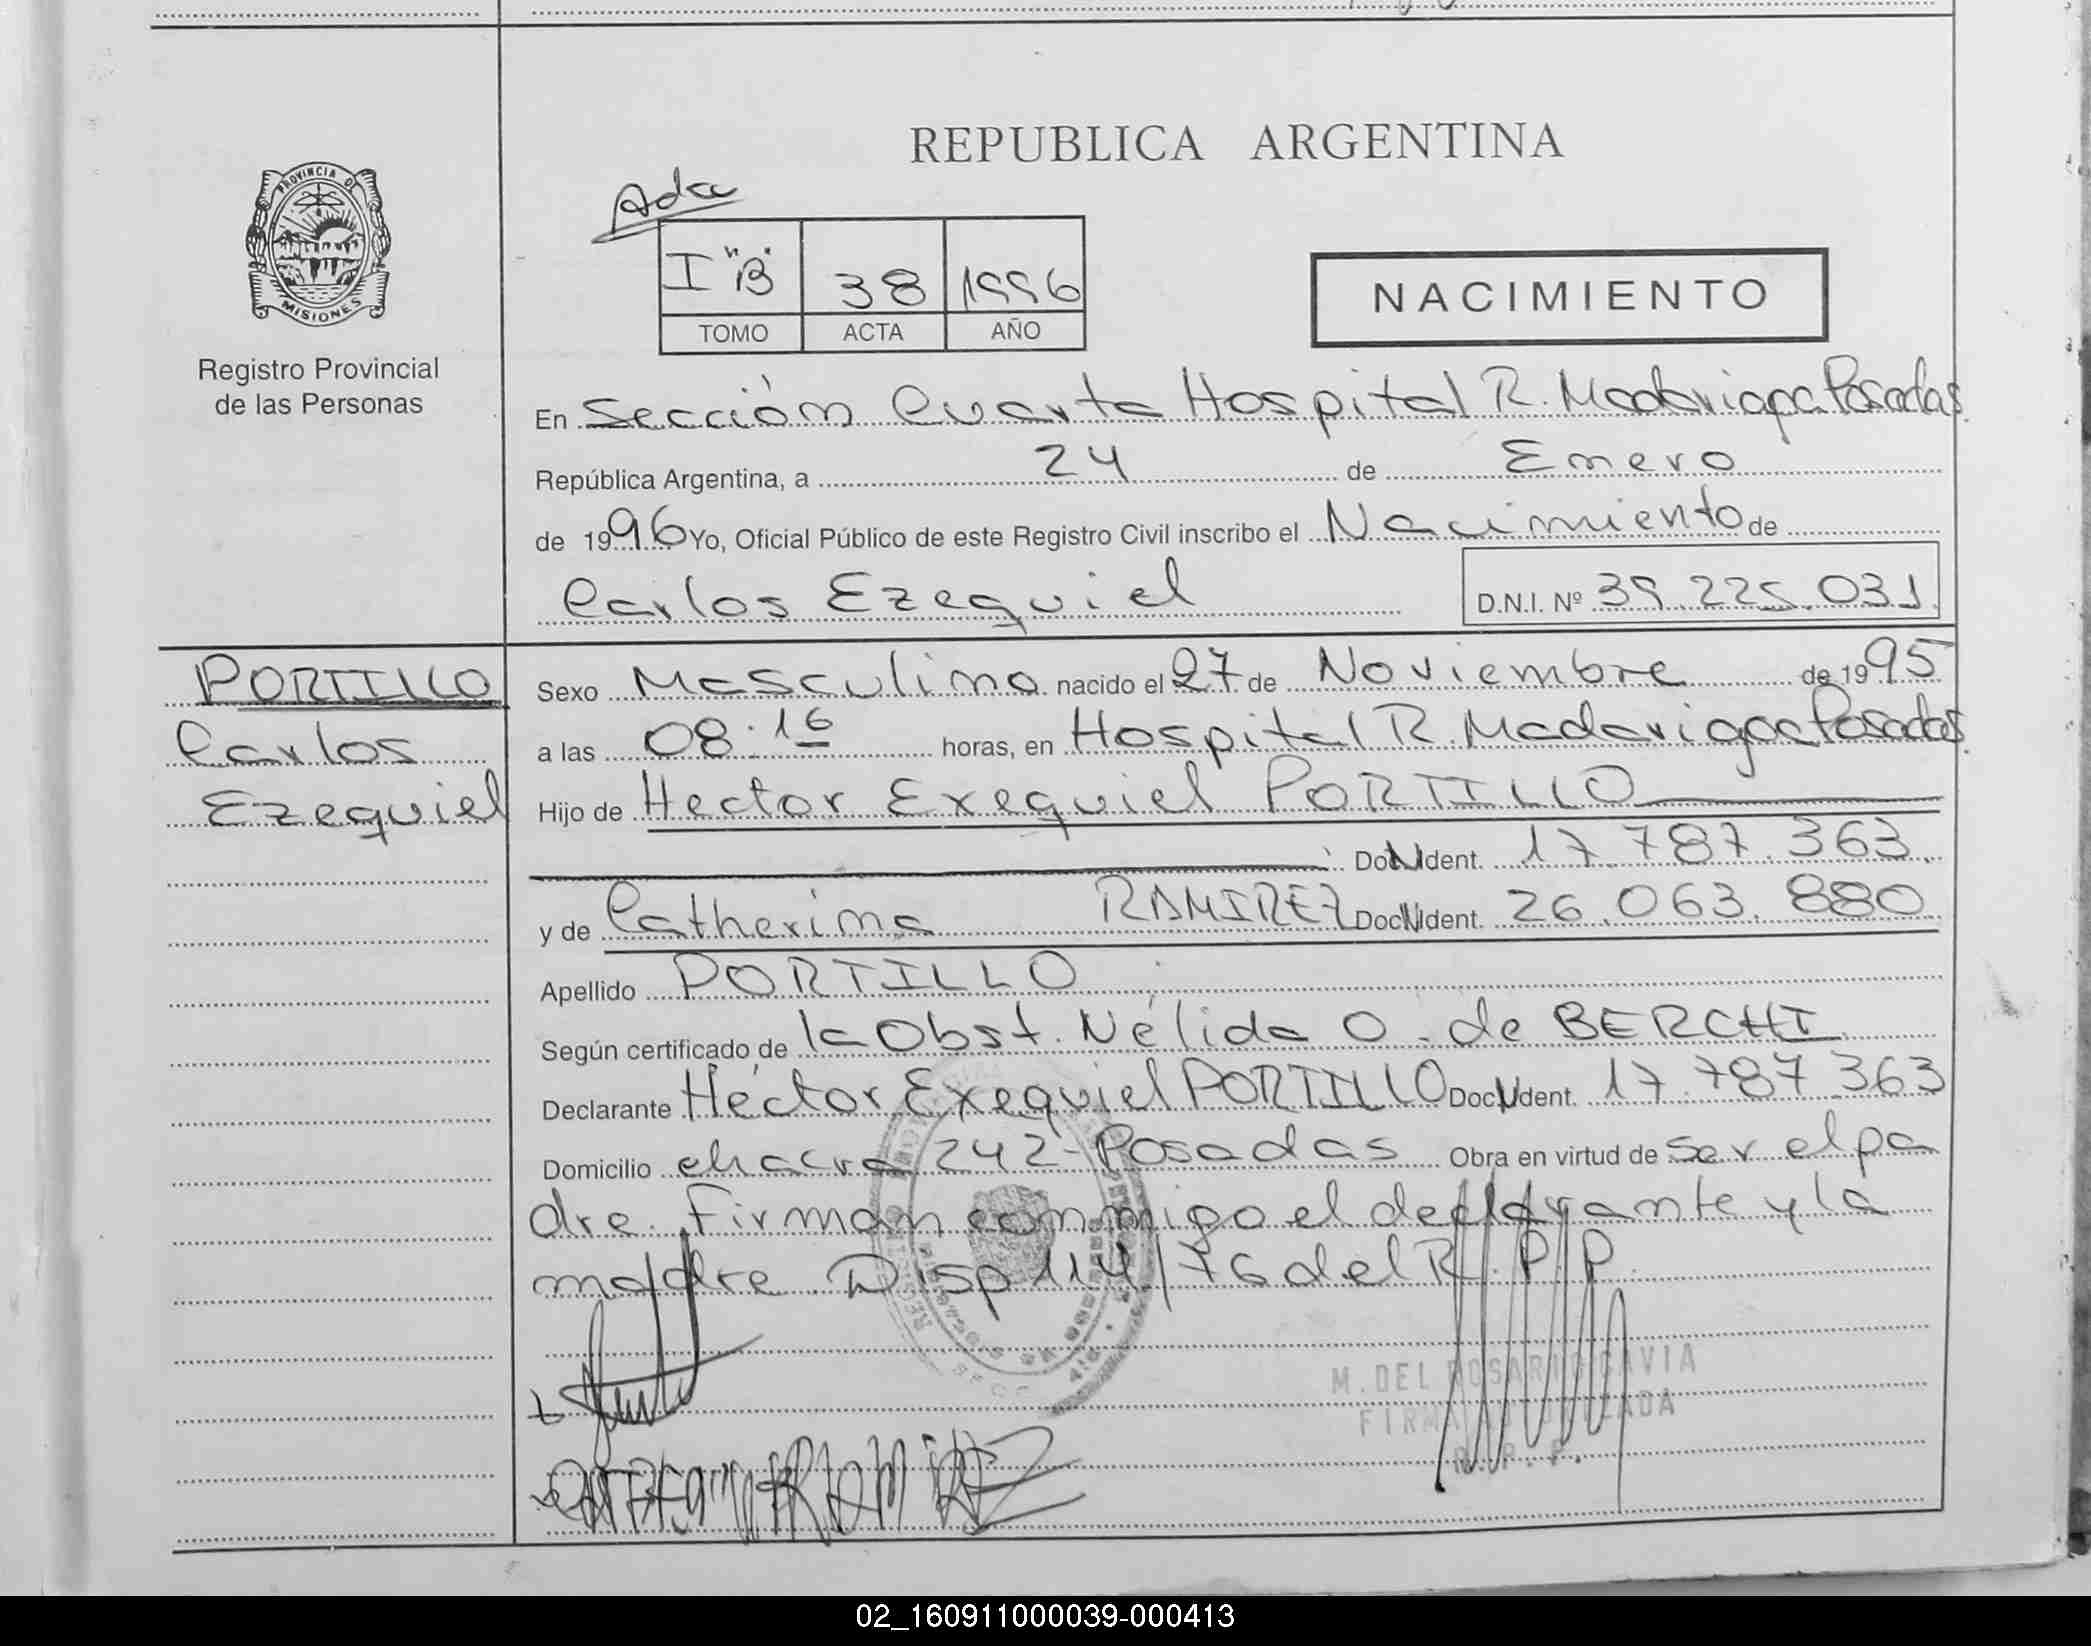 REPUBLICA ARGENTINA
Ada
PROVINCIA DE
MISIONES
I "B" 38 1996
TOMO ACTA AÑO
NACIMIENTO
Registro Provincial
de las Personas
En Sección Cuarta Hospital R. Madariaga Posadas
República Argentina, a 24 de Enero
de 1996 Yo, Oficial Público de este Registro Civil inscribo el Nacimiento de
Carlos Ezequiel D.N.I. Nº 39.225.031
PORTILLO
Carlos
Ezequiel
Sexo Masculino nacido el 27 de Noviembre de 1995
a las 08.16 horas, en Hospital R. Madariaga Posadas
Hijo de Hector Exequiel PORTILLO
Doc. Ident. 17.787.363
y de Catherina RAMIREZ Doc. Ident. 26.063.880
Apellido PORTILLO
Según certificado de la Obst. Nélida O. de BERCHI
Declarante Héctor Exequiel PORTILLO Doc. Ident. 17.787.363
Domicilio chacra 242 - Posadas Obra en virtud de ser el pa
dre. Firman conmigo el declarante y la
madre. Disp 114/76 del R.P.P.
M. DEL ROSARIO GAVIA
FIRMA AUTORIZADA
R.P.P.
RAMIREZ
02_160911000039-000413